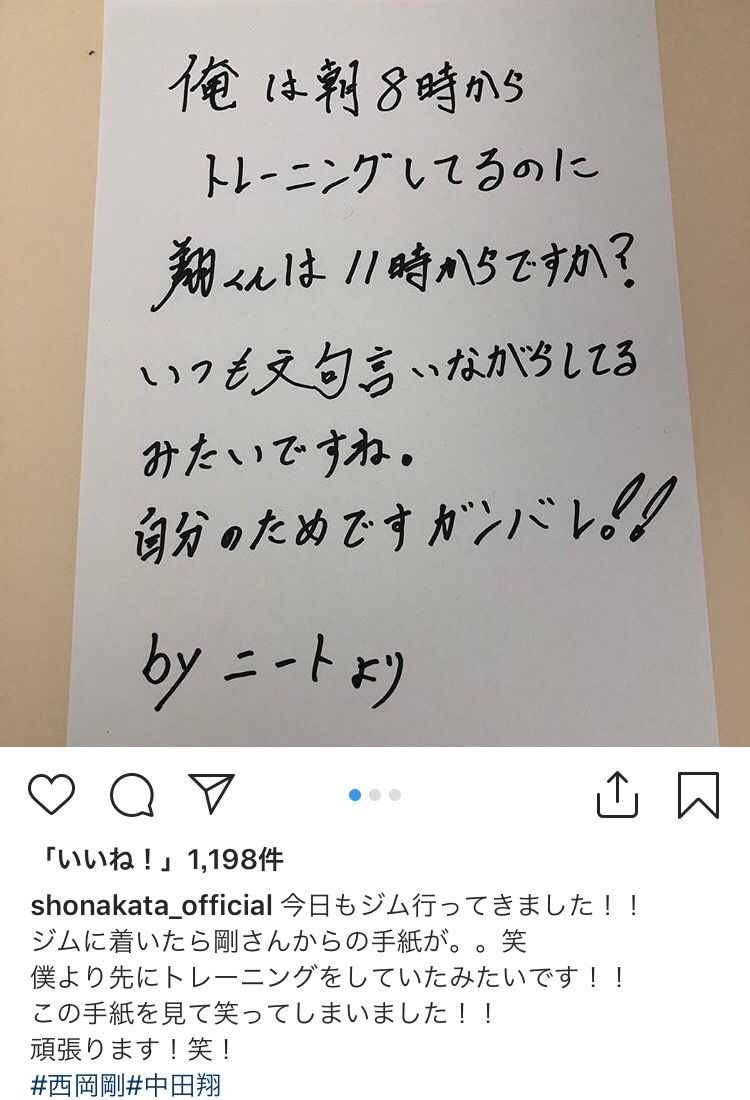 俺は朝8時から
トレーニングしてるのに
翔くんは11時からですか?
いつも文句言いながらしてる
みたいですね。
自分のためですガンバレ!!
by ニートより
「いいね！」1,198件
shonakata_official 今日もジム行ってきました！！
ジムに着いたら剛さんからの手紙が。。笑
僕より先にトレーニングをしていたみたいです！！
この手紙を見て笑ってしまいました！！
頑張ります！笑！
#西岡剛#中田翔